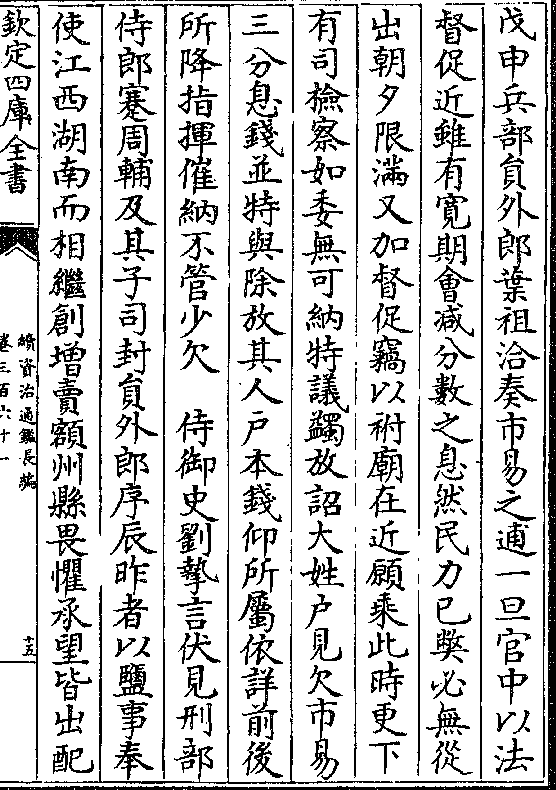 戊申兵部貟外郎葉祖洽奏市易之逋一旦官中以法
督促近雖有寛期會减分數之息然民力已𡚁必無從
出朝夕限滿又加督促竊以祔廟在近願乗此時更下
有司檢察如委無可納特議蠲放詔大姓户見欠市易
三分息錢並特與除放其人户本錢仰所屬依詳前後
所降指揮催納不管少欠　侍御史劉摯言伏見刑部
侍郎蹇周輔及其子司封貟外郎序辰昨者以鹽事奉
使江西湖南而相繼創增賣額州縣畏懼承望皆出配
欽定四庫全書
續資治通鑑長編
卷三百六十一
十五